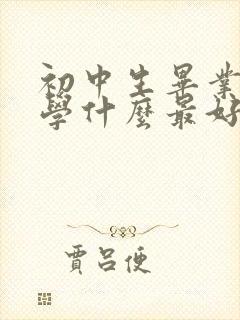 初中生畢業
學什麼最好
賈呂便